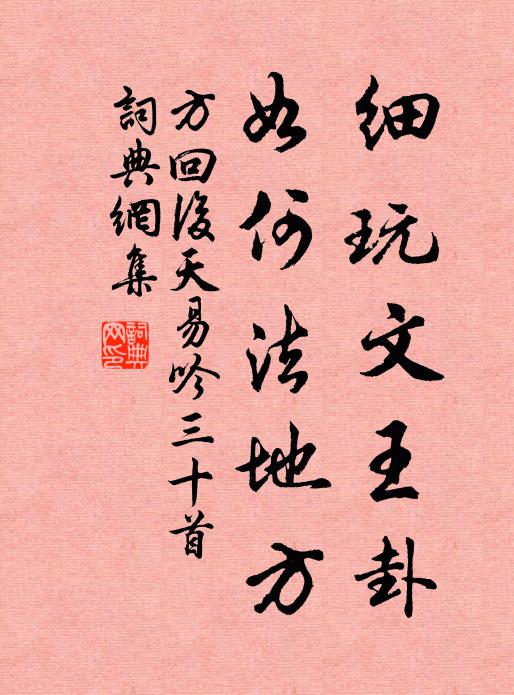 细玩文王卦
如何法地方
方回后天易吟三十首
詞典網集
詞典网印